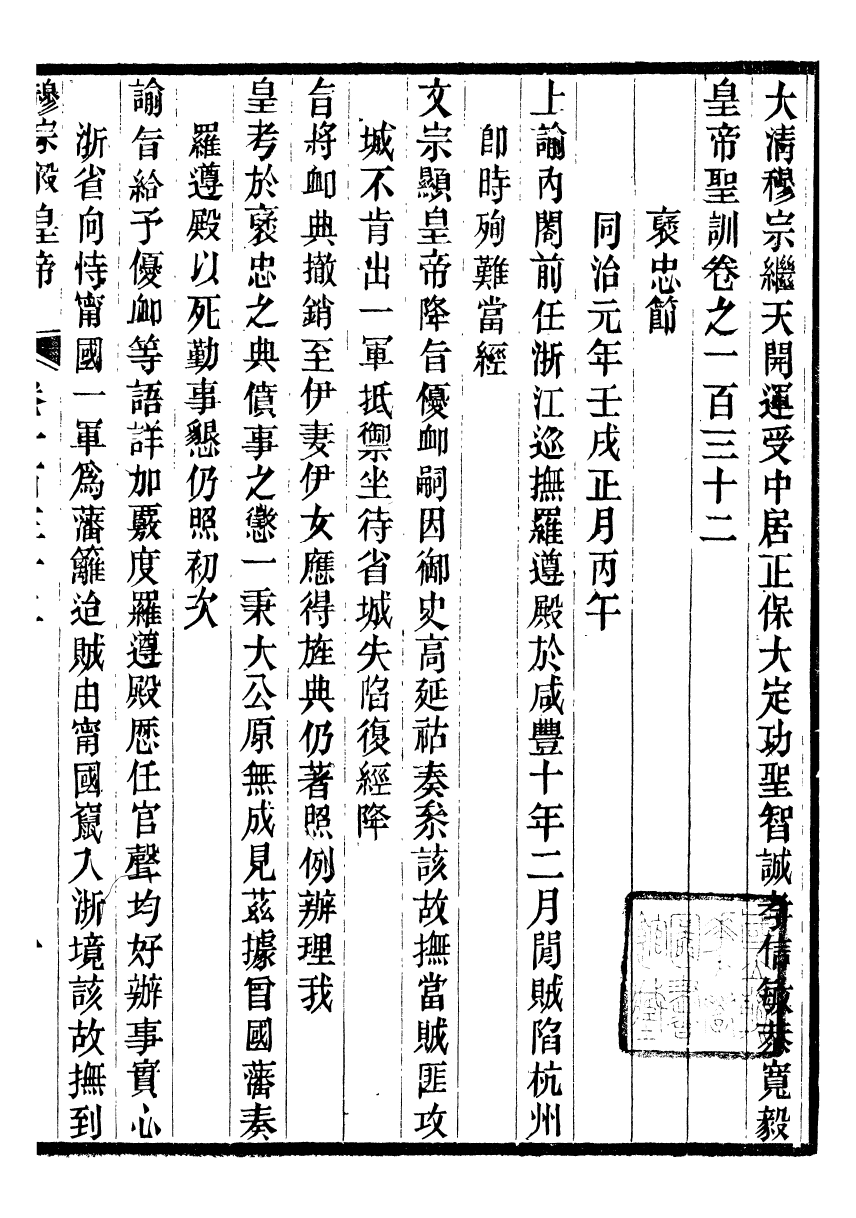 大清穆宗繼天開運受中居正保大定功聖智誠孝信敏恭寬毅
皇帝聖訓卷之一百三十二
襃忠節
同治元年壬戌正月丙午
上諭內閣前任浙江巡撫羅遵殿於咸豐十年二月閒賊陷杭州
卽時殉難當經
文宗顯皇帝降旨優衈嗣因御史高延祜奏叅該故撫當賊匪攻
城不肯出一軍抵禦坐待省城失陷復經降
旨將衈典撤銷至伊妻伊女應得旌典仍著照例辦理我
皇考於襃忠之典僨事之懲一秉大公原無成見茲據曾國藩奏
羅遵殿以死勤事懇仍照初次
諭旨給予優衈等語詳加覈度羅遵殿歷任官聲均好辦事實心
浙省向恃甯國一軍爲藩籬迨賊由甯國竄入浙境該故撫到
穆宗毅皇帝 卷一百三十二